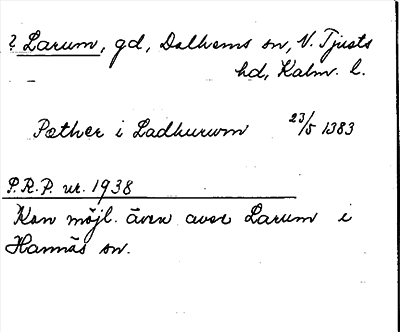 ? Larum, gd, Dalhems sn, N. Tjusts
hd, Kalm. l.
Pæther i Ladhurwm 23/5 1383
P.R.P. nr. 1938
Kan möjl. även avse Larum i
Hannäs sn.